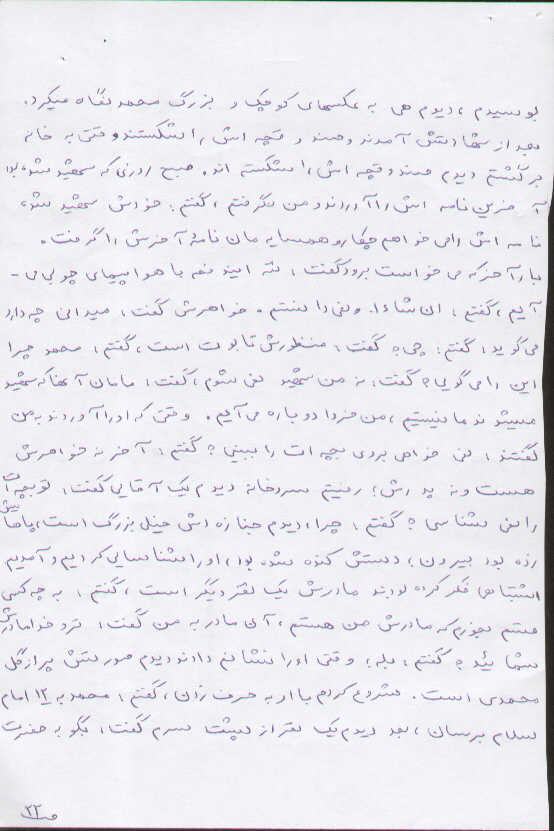 بوسیدم، دیدم هی به عکسهای کوچک و بزرگ محمد نگاه میکرد.
بعد از شهادتش آمدند و صندوقچه اش را شکستند وقتی به خانه
برگشتم دیدم صندوقچه اش را شکسته اند. صبح روزی که شهید شده بود
آخرین نامه اش را آوردند و من نگرفتم، گفتم: خودش شهید شده،
نامه اش را می خواهم چکار و همسایه مان نامهٔ آخرش را گرفت.
بار آخر که می خواست برود گفت: ننه ایندفعه با هواپیمای چوبی می-
آیم، گفتم: ان شاءا. ولی دانستم. خواهرش گفت: میدانی چه دارد
می گوید؛ گفتم: چی؟ گفت: منظورش تابوت است، گفتم: محمد چرا
این را می گویی؟ گفت: نه من شهید نمی شوم، گفت: مامان آنها که شهید
میشوند ما نیستیم، من فردا دوباره می آیم. وقتی که او را آوردند به من
گفتند: نمی خواهی بروی بچه ات را ببینی؟ گفتم: آخر نه خواهرش
هست و نه پدرش؛ رفتیم سردخانه دیدم یک آقایی گفت: تو بچه ات
را نمی شناسی؟ گفتم: چرا، دیدم جنازه اش خیلی بزرگ است، پاهایش
زده بود بیرون، دستش کنده شده بود، او را شناسایی کردیم و آمدیم
اشتباهی فکر کرده بودند مادرش یک نفر دیگر است، گفتم: به چه کسی
قسم بخورم که مادرش من هستم، آن مادر به من گفت: ترو خدا مادرش
شمائید؟ گفتم: بله؛ وقتی او را نشانم دادند دیدم صورتش پر از گل
محمدی است. شروع کردم با او به حرف زدن، گفتم: محمد به ۱۲ امام
سلام برسان، بعد دیدم یک نفر از پشت سرم گفت: بگو به حضرت
ص ۲۲